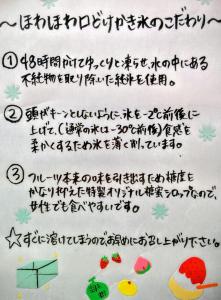 ～ほわほわ口どけかき氷のこだわり～
① 48時間かけてゆっくりと凍らせ、水の中にある
不純物を取り除いた純氷を使用。
② 頭がキーンとしないように、氷を-2℃前後に
上げて、(通常の氷は-30℃前後)食感を
柔かくするため氷を薄く削っています。
③ フルーツ本来の味を引き出すため糖度を
かなり抑えた特製オリジナル糖蜜シロップなので、
女性でも食べやすいです。
☆すぐに溶けてしまうのでお早めにお召し上がり下さい。